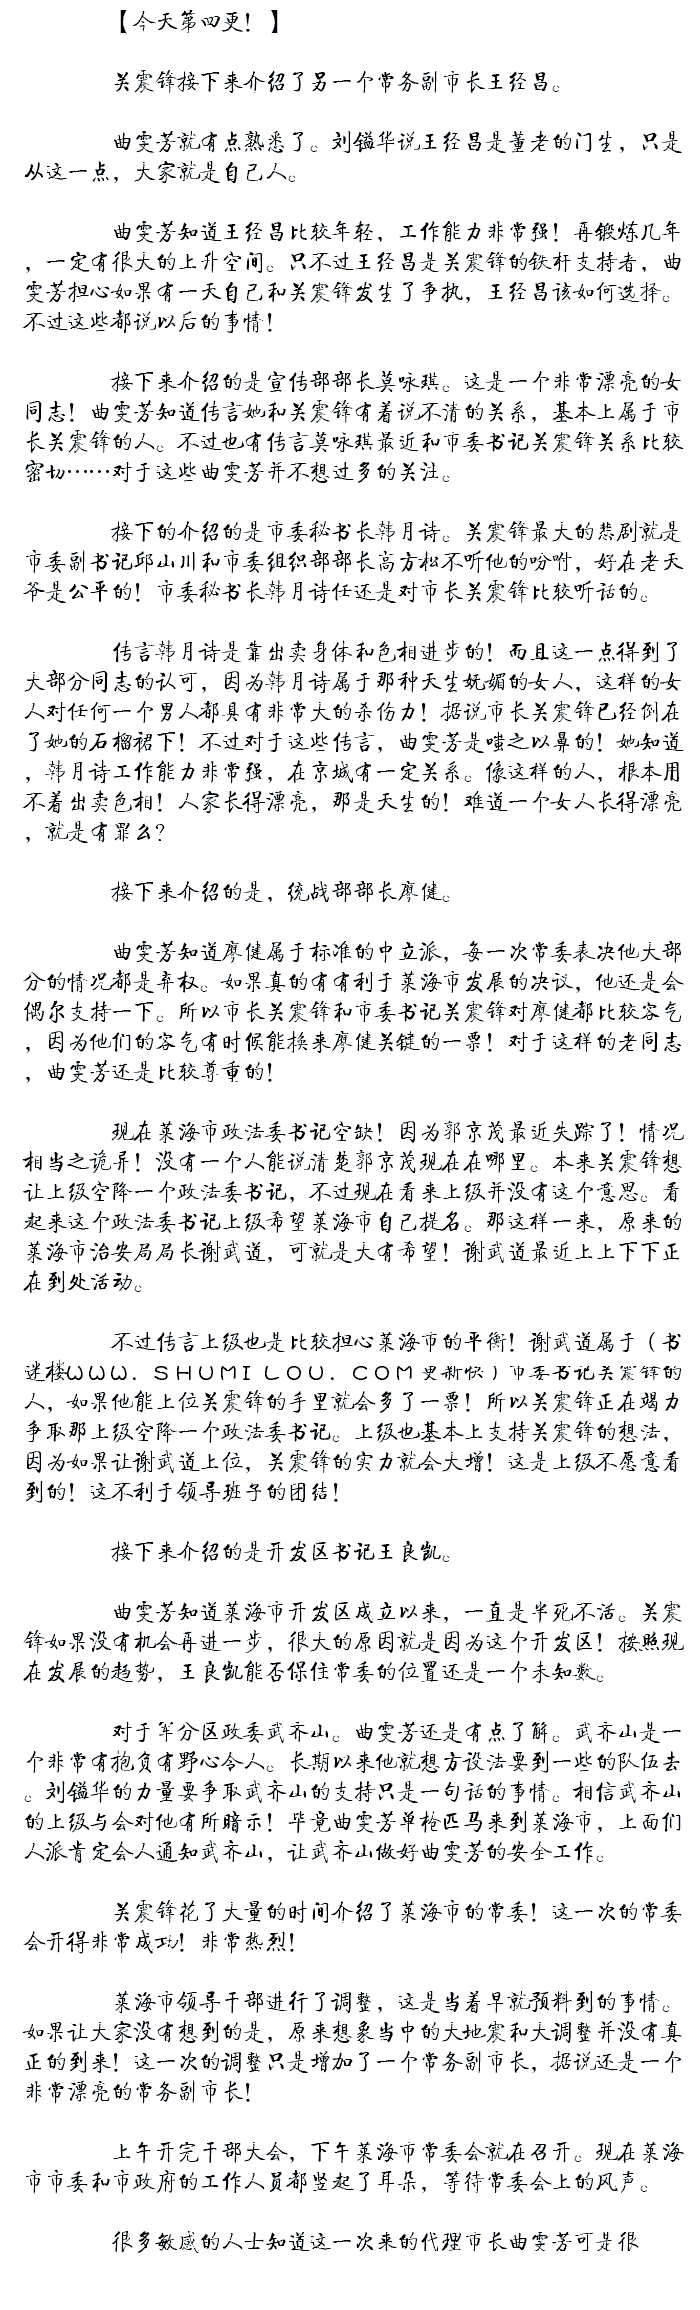 【今天第四更！】
关震锋接下来介绍了另一个常务副市长王经昌。
曲雯芳就有点熟悉了。刘镒华说王经昌是董老的门生，只是
从这一点，大家就是自己人。
曲雯芳知道王经昌比较年轻，工作能力非常强！再锻炼几年
，一定有很大的上升空间。只不过王经昌是关震锋的铁杆支持者，曲
雯芳担心如果有一天自己和关震锋发生了争执，王经昌该如何选择。
不过这些都说以后的事情！
接下来介绍的是宣传部部长莫咏琪。这是一个非常漂亮的女
同志！曲雯芳知道传言她和关震锋有着说不清的关系，基本上属于市
长关震锋的人。不过也有传言莫咏琪最近和市委书记关震锋关系比较
密切……对于这些曲雯芳并不想过多的关注。
接下的介绍的是市委秘书长韩月诗。关震锋最大的悲剧就是
市委副书记邱山川和市委组织部部长高方松不听他的吩咐，好在老天
爷是公平的！市委秘书长韩月诗任还是对市长关震锋比较听话的。
传言韩月诗是靠出卖身体和色相进步的！而且这一点得到了
大部分同志的认可，因为韩月诗属于那种天生妩媚的女人，这样的女
人对任何一个男人都具有非常大的杀伤力！据说市长关震锋已经倒在
了她的石榴裙下！不过对于这些传言，曲雯芳是嗤之以鼻的！她知道
，韩月诗工作能力非常强，在京城有一定关系。像这样的人，根本用
不着出卖色相！人家长得漂亮，那是天生的！难道一个女人长得漂亮
，就是有罪么？
接下来介绍的是，统战部部长廖健。
曲雯芳知道廖健属于标准的中立派，每一次常委表决他大部
分的情况都是弃权。如果真的有有利于莱海市发展的决议，他还是会
偶尔支持一下。所以市长关震锋和市委书记关震锋对廖健都比较客气
，因为他们的客气有时候能换来廖健关键的一票！对于这样的老同志
，曲雯芳还是比较尊重的！
现在莱海市政法委书记空缺！因为郭京茂最近失踪了！情况
相当之诡异！没有一个人能说清楚郭京茂现在在哪里。本来关震锋想
让上级空降一个政法委书记，不过现在看来上级并没有这个意思。看
起来这个政法委书记上级希望莱海市自己提名。那这样一来，原来的
莱海市治安局局长谢武道，可就是大有希望！谢武道最近上上下下正
在到处活动。
不过传言上级也是比较担心莱海市的平衡！谢武道属于（书
迷楼ＷＷＷ．ＳＨＵＭＩＬＯＵ．ＣＯＭ更新快）市委书记关震锋的
人，如果他能上位关震锋的手里就会多了一票！所以关震锋正在竭力
争取那上级空降一个政法委书记。上级也基本上支持关震锋的想法，
因为如果让谢武道上位，关震锋的实力就会大增！这是上级不愿意看
到的！这不利于领导班子的团结！
接下来介绍的是开发区书记王良凯。
曲雯芳知道莱海市开发区成立以来，一直是半死不活。关震
锋如果没有机会再进一步，很大的原因就是因为这个开发区！按照现
在发展的趋势，王良凯能否保住常委的位置还是一个未知数。
对于军分区政委武齐山。曲雯芳还是有点了解。武齐山是一
个非常有抱负有野心令人。长期以来他就想方设法要到一些的队伍去
。刘镒华的力量要争取武齐山的支持只是一句话的事情。相信武齐山
的上级与会对他有所暗示！毕竟曲雯芳单枪匹马来到莱海市，上面们
人派肯定会人通知武齐山，让武齐山做好曲雯芳的安全工作。
关震锋花了大量的时间介绍了莱海市的常委！这一次的常委
会开得非常成功！非常热烈！
莱海市领导干部进行了调整，这是当着早就预料到的事情。
如果让大家没有想到的是，原来想象当中的大地震和大调整并没有真
正的到来！这一次的调整只是增加了一个常务副市长，据说还是一个
非常漂亮的常务副市长！
上午开完干部大会，下午莱海市常委会就在召开。现在莱海
市市委和市政府的工作人员都竖起了耳朵，等待常委会上的风声。
很多敏感的人士知道这一次来的代理市长曲雯芳可是很